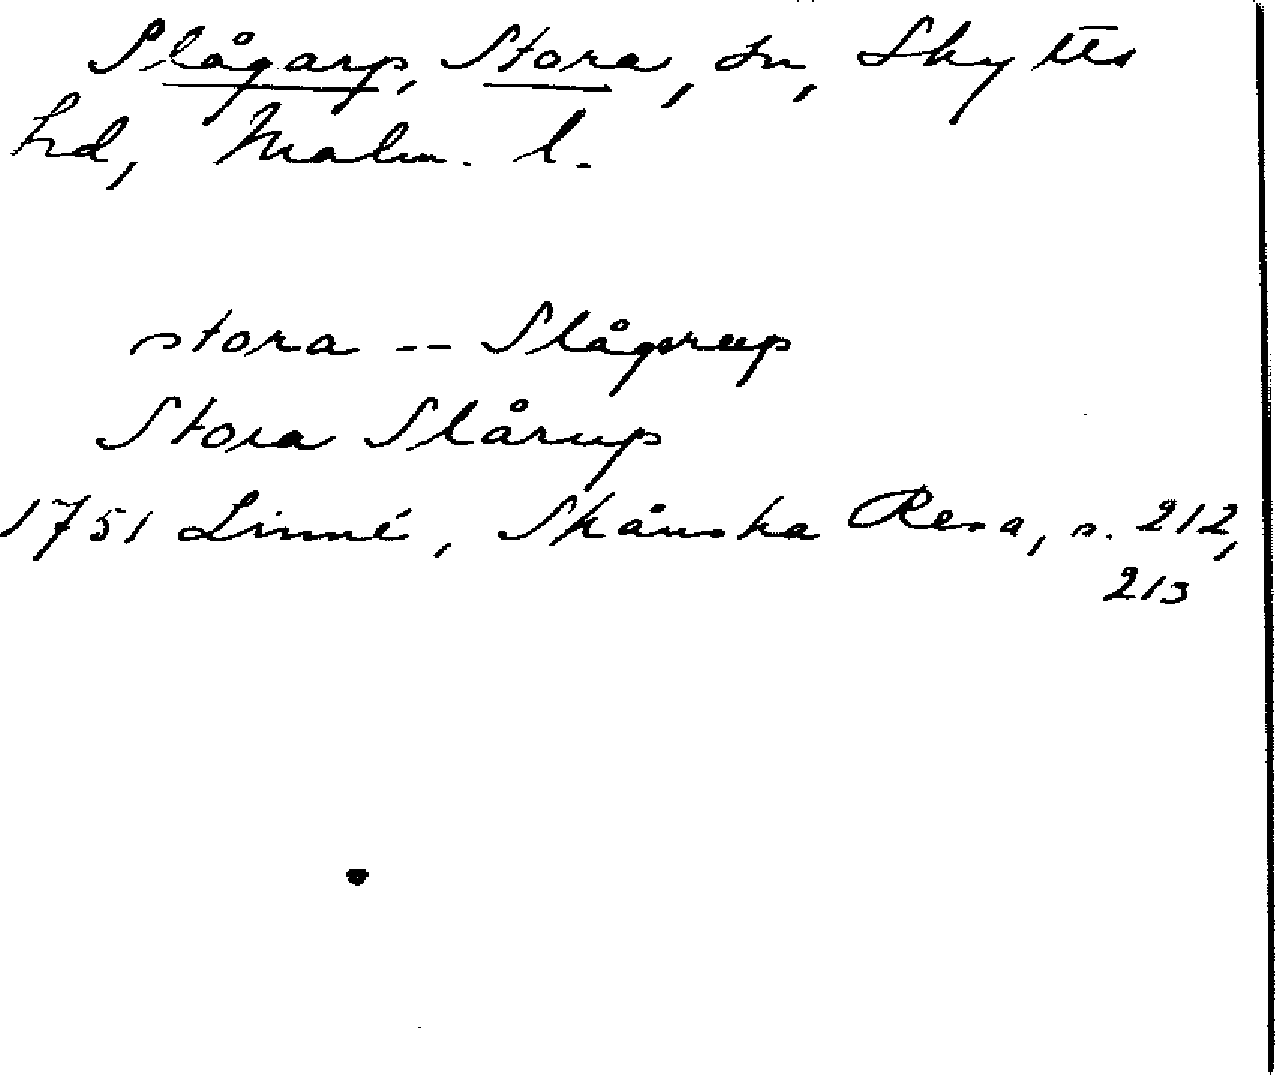 Slågarp, Stora, sn, Skytts
hd, Malm. l.
stora -- Slågerup
Stora Slårup
1751 Linné, Skånska Resa, s. 212,
213